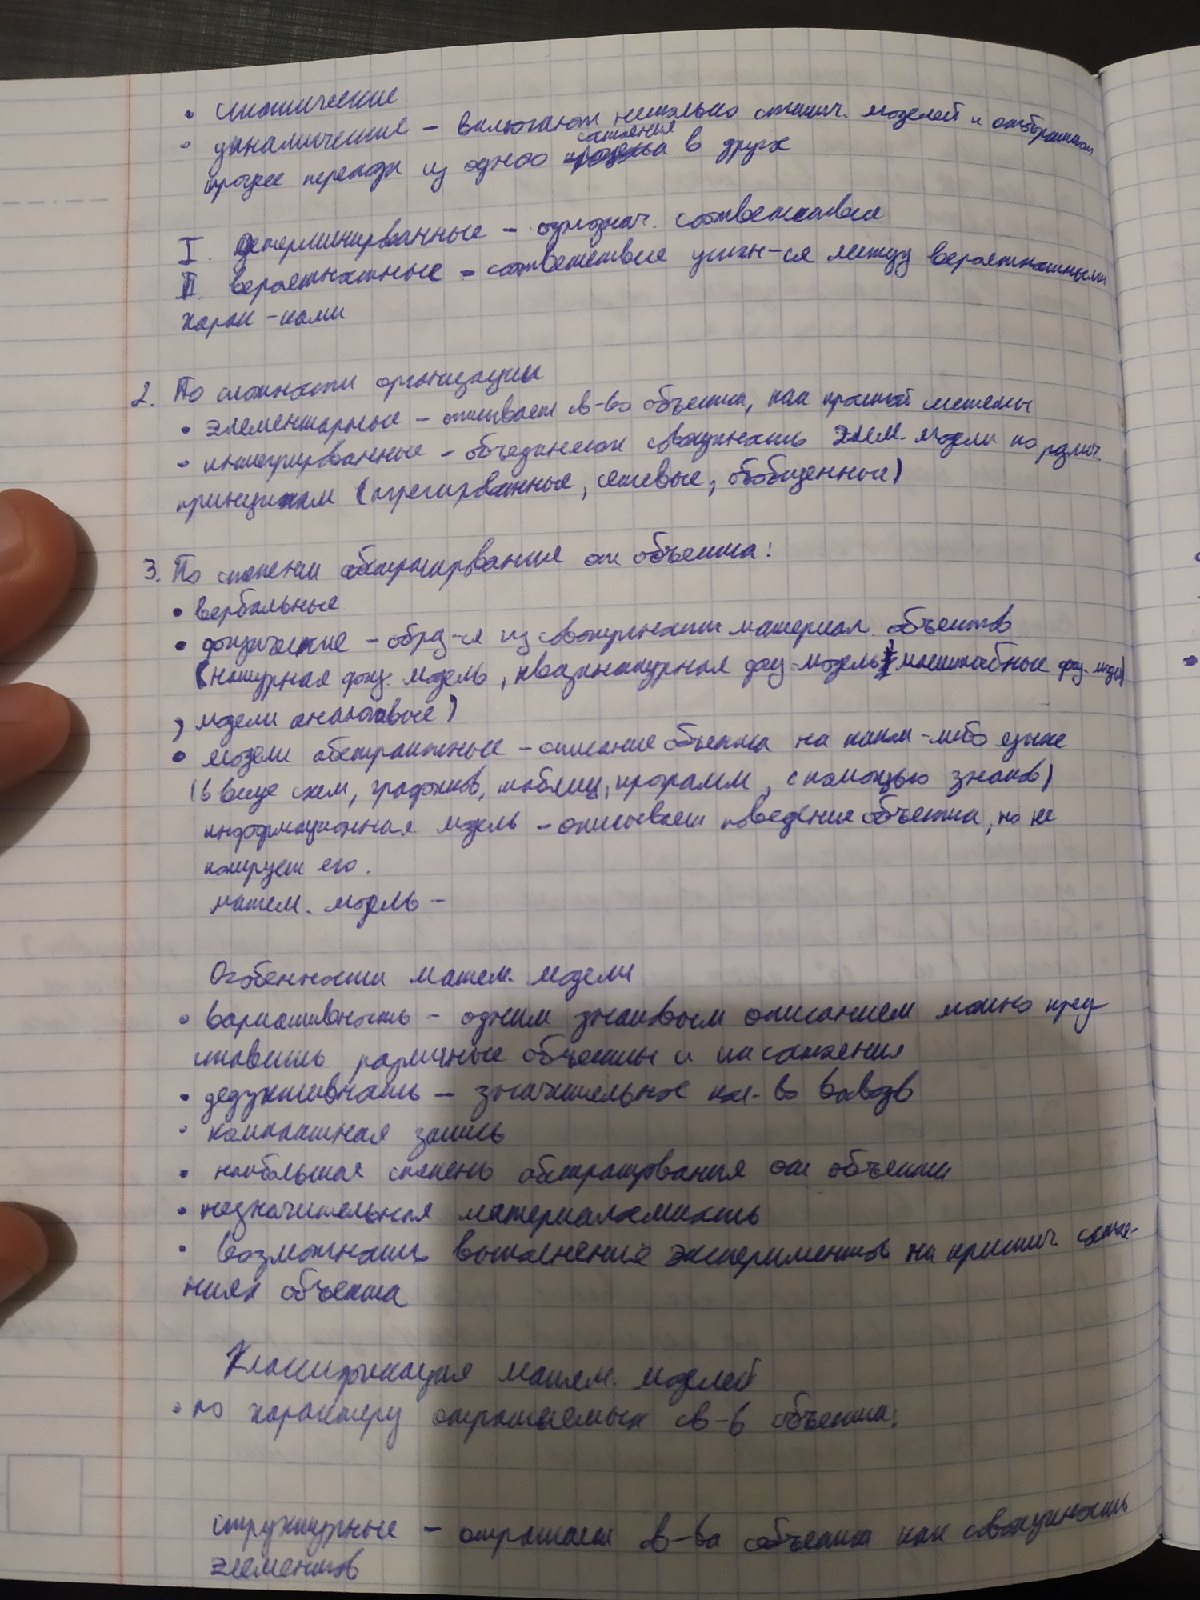 • статические
• динамические – включают несколько статич. моделей и отображают
процесс перехода из одного состояния в другое
I. Детерминированные – однознач. соответствие
II. вероятностные – соответствие устан-ся между вероятностными
харак-ками
2. По сложности организации
• элементарные – описывает св-во объекта, как простой системы
• интегрированные – объединяют совокупность элем. модели по разл.
принципам (агрегированные, сетевые, обобщенные)
3. По степени абстрагирования от объекта:
• вербальные
• физические – образ-ся из совокупности материал. объектов
(натурная физ. модель, квазинатурная физ. модель, масштабные физ. модел
, модели аналоговые)
• модели абстрактные – описание объекта на каком-либо языке
(в виде схем, графиков, таблиц, программ, с помощью знаков)
информационная модель – описывает поведение объекта, но не
копирует его.
матем. модель –
Особенности матем. модели
• вариативность – одним знаковым описанием можно пред
ставить различные объекты и их состояния
• дедуктивность – значительное кол-во выводов
• компактная запись
• наибольшая степень абстрагирования от объекта
• незначительная материалоемкость
• возможность выполнения экспериментов на критич. состоя-
ниях объекта
Классификация матем. моделей
• по характеру отражаемых св-в объекта:
структурные – отражает св-ва объекта как совокупность
элементов